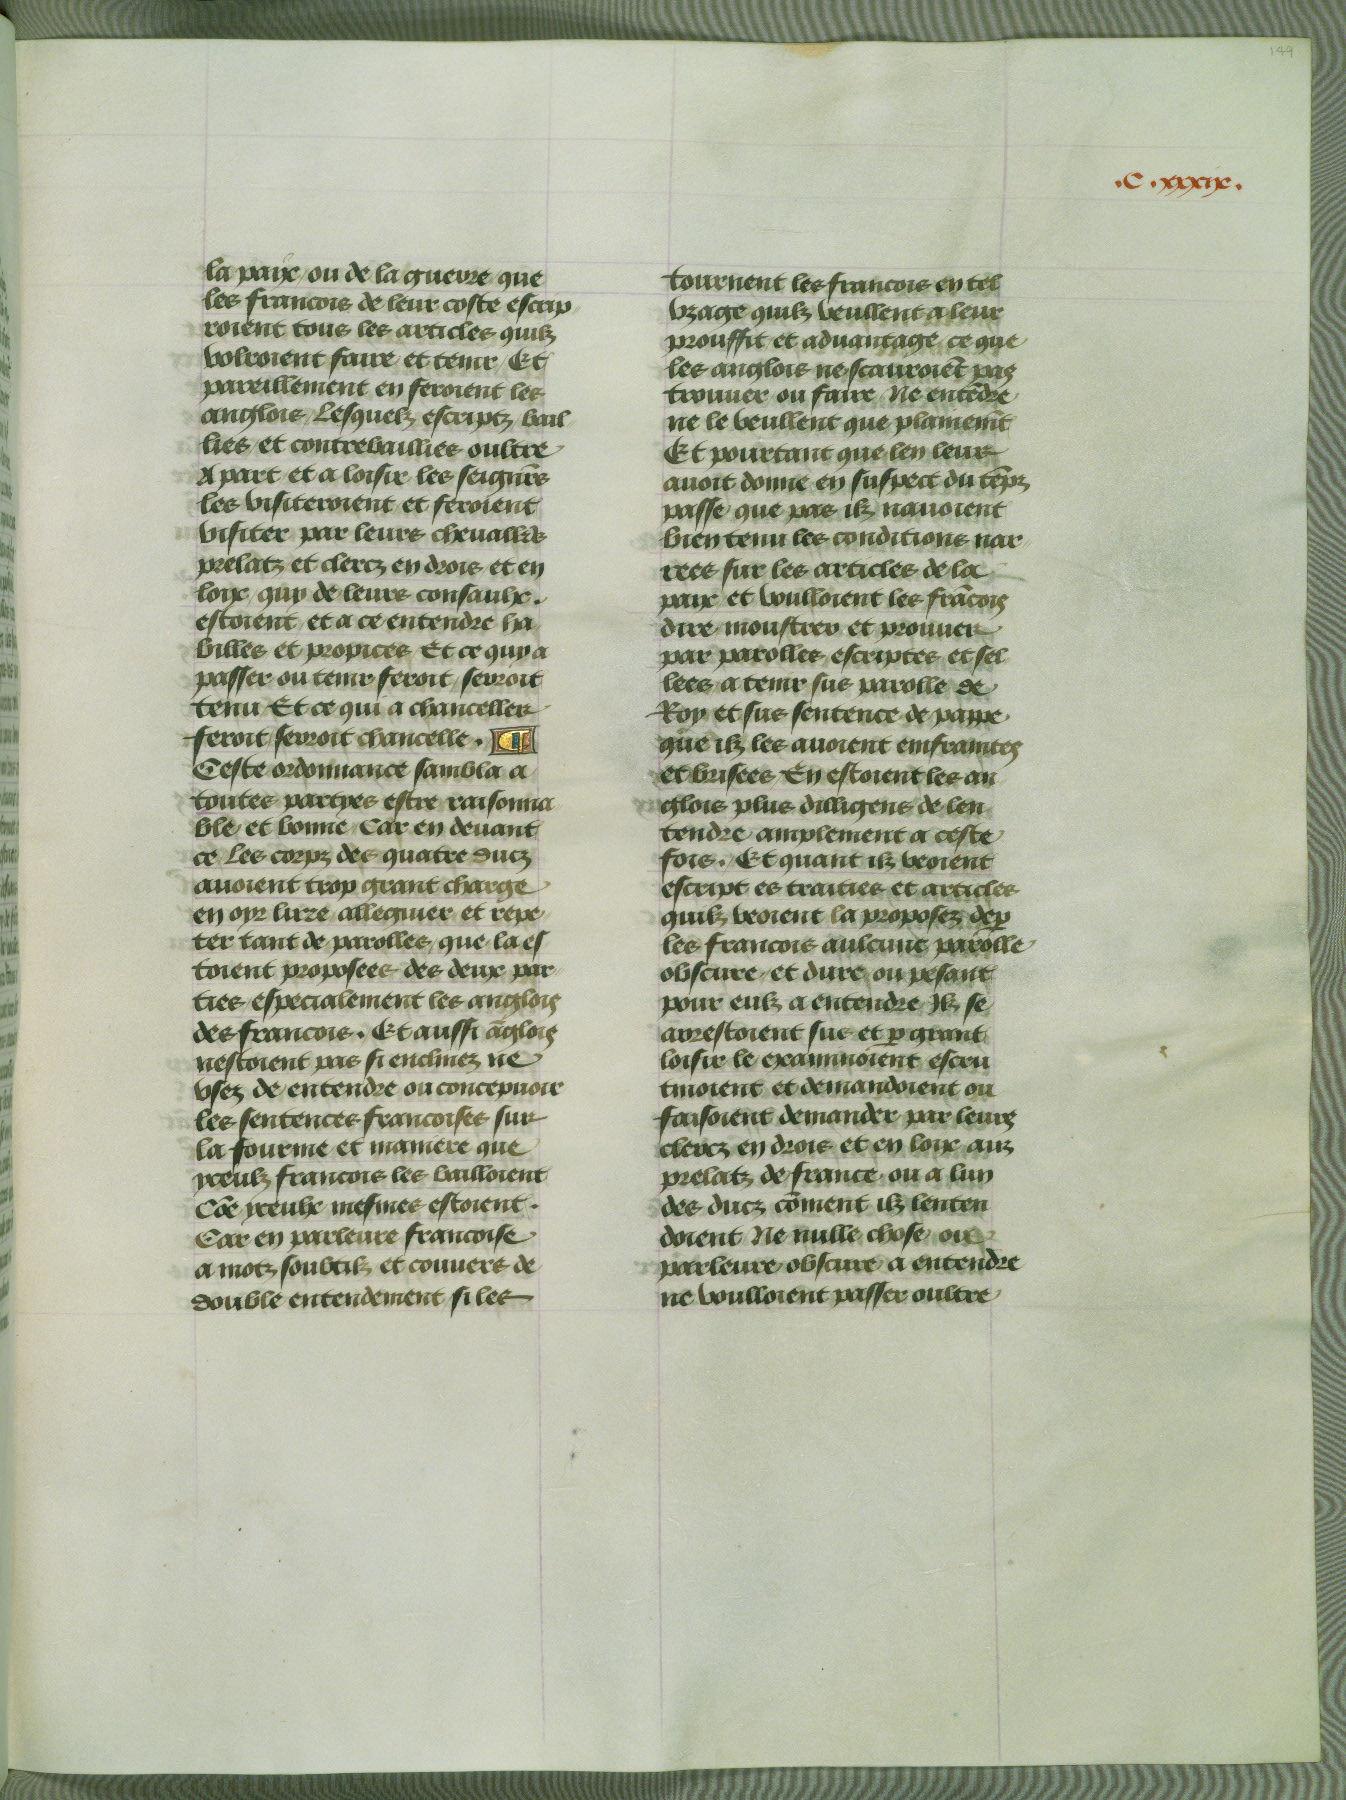 149
.C.xxxix.
la paix ou de la guerre que
les francois de leur coste escrip
roient tous les articles quilz
volroient faire et tenir Et
pareillement en feroient les
anglois Lesquelz escriptz bail
lies et contrebaillies oultre
A part et a loisir les seignrs
les visiteroient et feroient
visiter par leurs chevalliers
prelatz et clercz en drois et en
loix quy de leurs consaulx.
estoient et a ce entendre ha
billes et propices Et ce quy a
passer ou tenir feroit seroit
tenu Et ce qui a chanceller
feroit seroit chancelle.
Ceste ordonnance sambla a
toutes partyes estre raisonna
ble et bonne Car en devant
ce Les corpz des quatre ducz
avoient trop grant charge
en oyr lirre alleguier et repe
ter tant de parolles que la es
toient proposees des deux par
ties especialement les anglois
des francois. Et aussi āglois
nestoient pas si enclinez ne
vsez de entendre ou concepvoir
les sentences francoises sur
la fourme et maniere que
yceulz francois les bailloient
Cōe yceulx mesmes estoient.
Car en parleure francoise
a motz soubtilz et couvers de
double entendement si les
tournent les francois en tel
vzage quilz veullent a leur
prouffit et advantage ce que
les anglois ne scauroiēt pas
trouver ou faire Ne entēdre
ne le veullent que plainemēt
Et pourtant que len leur
avoit donne en suspect du tēpz
passe que pas ilz navoient
bien tenu les conditions nar
rees sur les articles de la
paix et voulloient les frācois
dire moustrer et prouver
par parolles escriptes et sel
lees a tenir sus parolle de
Roy et sus sentence de pappe
que ilz les avoient emfraintes
et brisees En estoient les an
glois plus dilligens de len
tendre amplement a ceste
fois. Et quant ilz veoient
escript es traities et articles
quilz veoient la proposez de p̱
les francois aulcune parolle
obscure et dure ou pesant
pour eulz a entendre Ilz se
arrestoient sus et p̱ grant
loisir le examinoient escru
tinoient et demandoient ou
faisoient demander par leurs
clercz en drois et en loix aux
prelatz de france ou a lun
des ducz cōment ilz lenten
doient Ne nulle chose ou
parleure obscure a entendre
ne voulloient passer oultre